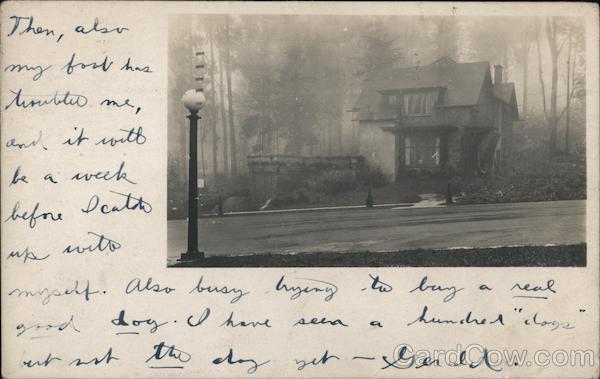 Then, also
my foot has
troubled me,
and it will
be a week
before I catch
up with
myself. Also busy trying to buy a real
good dog. I have seen a hundred "dogs"
but not the dog yet — Gerald.
CardCow.com